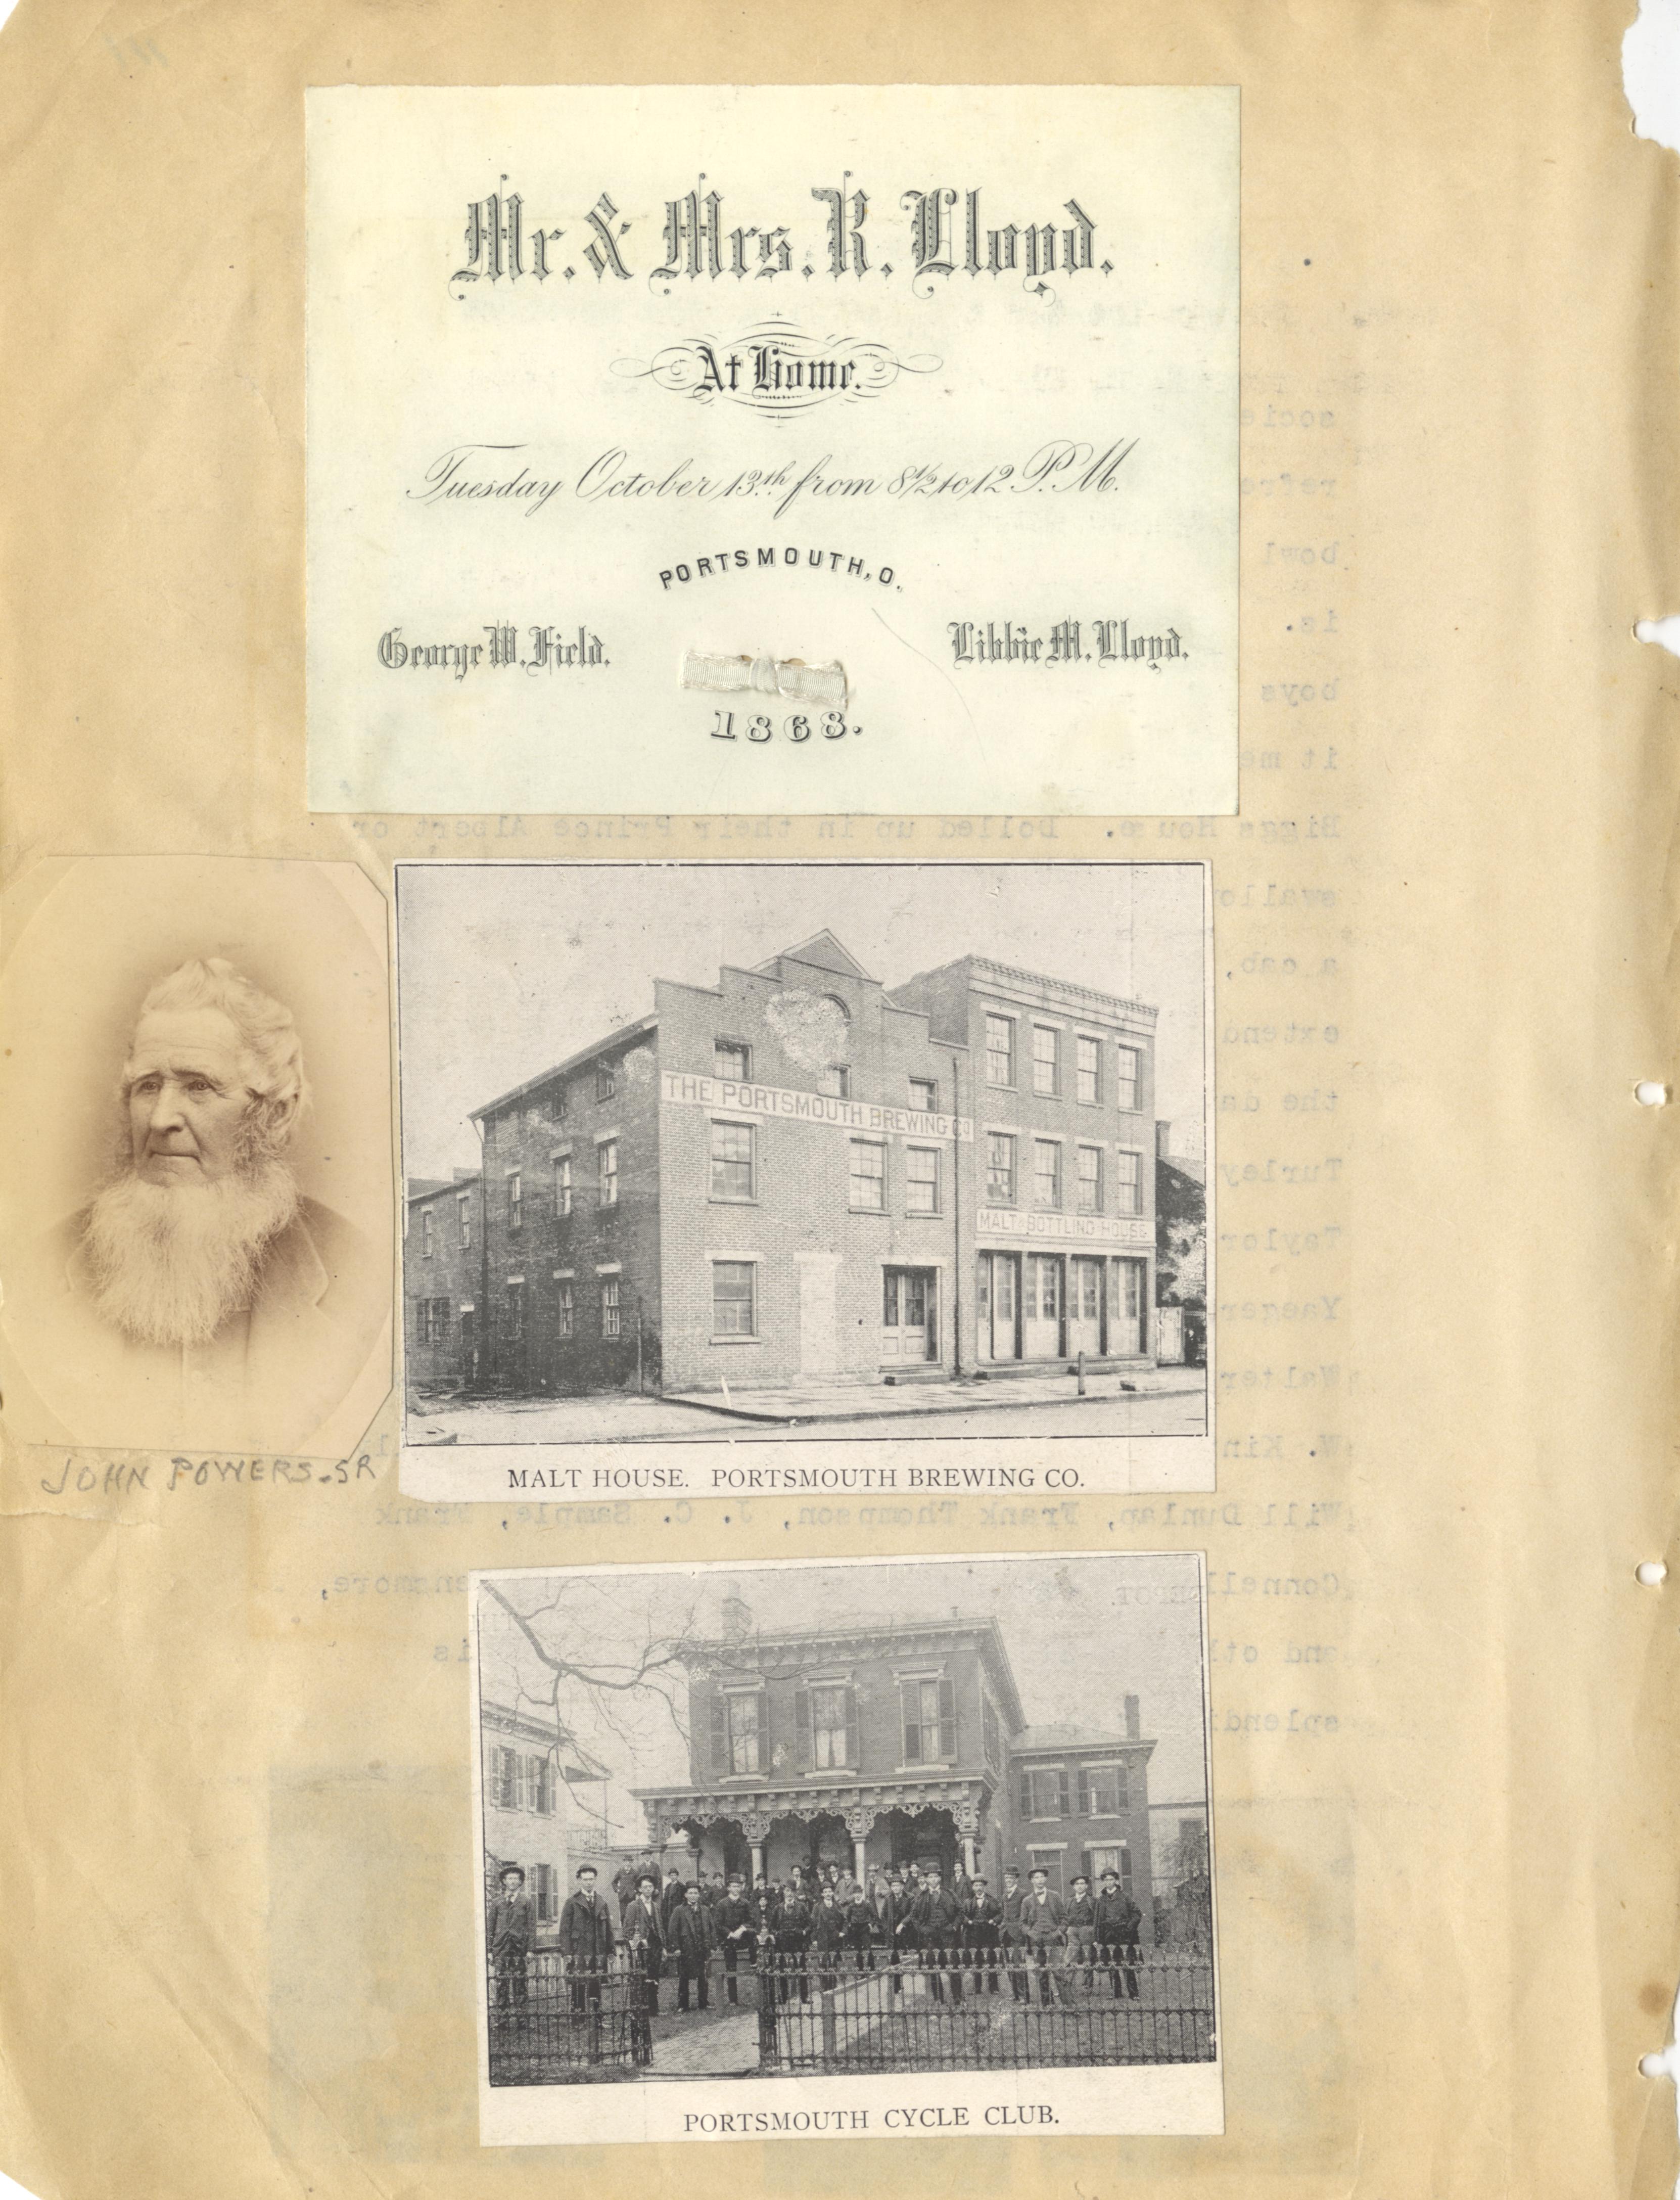 Mr. & Mrs. R. Lloyd.
At Home.
Tuesday October 13th from 8½ to 12 P.M.
PORTSMOUTH, O.
George W. Field. Libbie M. Lloyd.
1868.
THE PORTSMOUTH BREWING CO
MALT & BOTTLING HOUSE
JOHN POWERS-SR
MALT HOUSE. PORTSMOUTH BREWING CO.
PORTSMOUTH CYCLE CLUB.